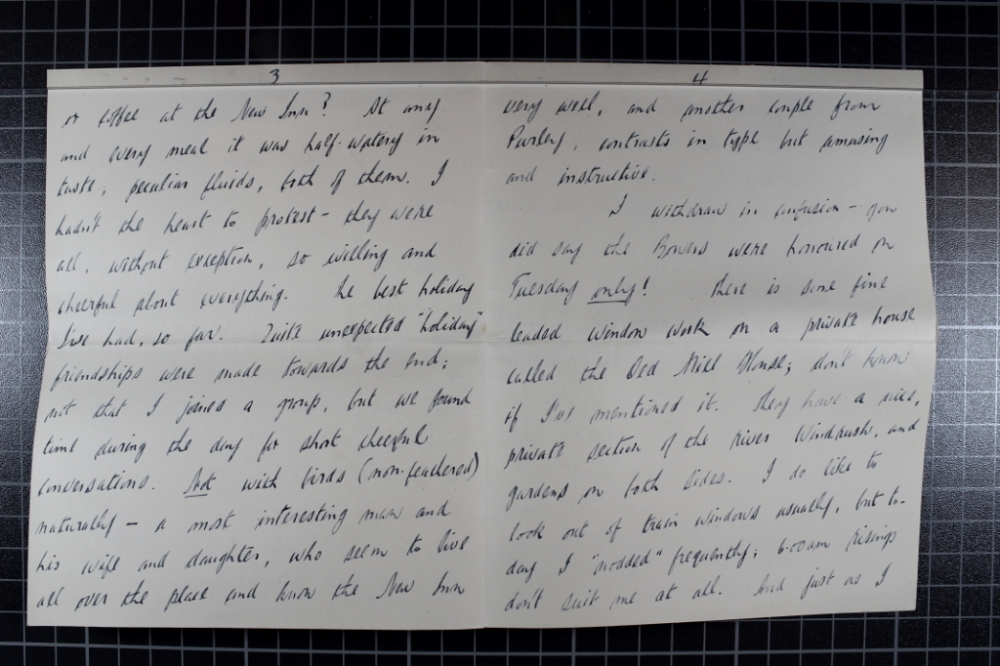 3
or coffee at the New Inn? At any
and every meal it was half-watery in
taste; peculiar fluids, both of them. I
hadn't the heart to protest - they were
all, without exception, so willing and
cheerful about everything. The best holiday
I've had, so far. Quite unexpected "holiday"
friendships were made towards the end;
not that I joined a group, but we found
time during the day for short cheerful
conversations. Not with birds (non-feathered)
naturally - a most interesting man and
his wife and daughter, who seem to live
all over the place and know the New Inn
4
very well, and another couple from
Purley, contrasts in type but amusing
and instructive.
I withdraw in confusion - you
did say the Bowers were honoured on
Tuesday only! There is some fine
leaded window work on a private house
called the Old Mill House; don't know
if I'd mentioned it. They have a nice,
private section of the river Windrush, and
gardens on both sides. I do like to
look out of train windows usually, but to-
day I "nodded" frequently; 6.00am risings
don't suit me at all. And just as I